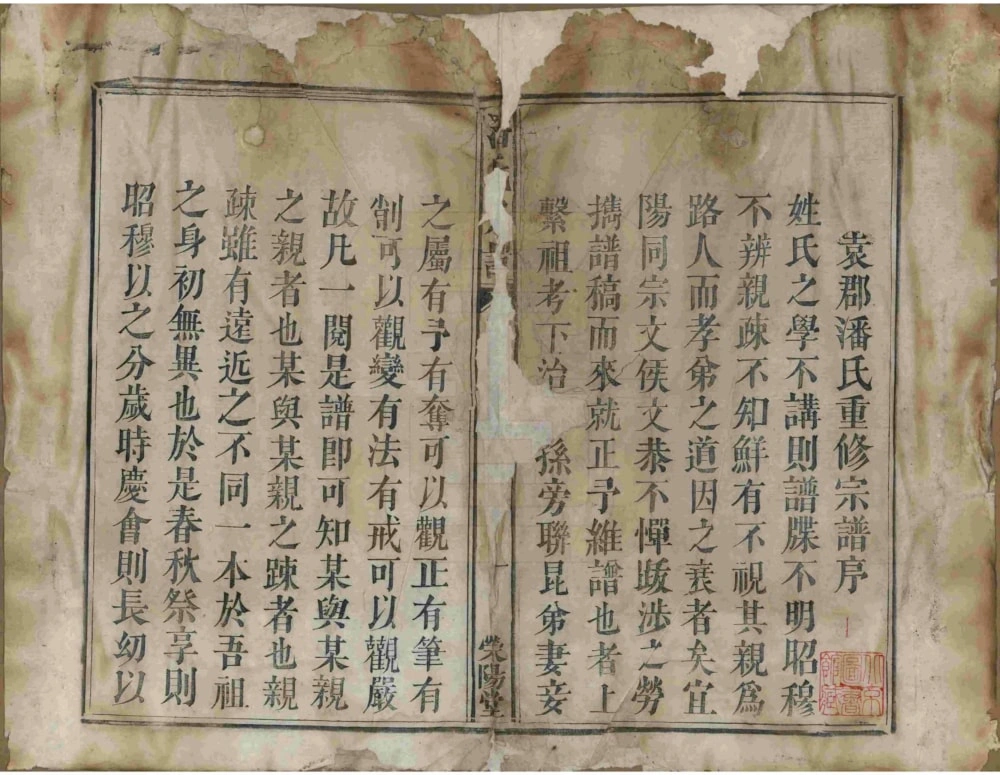 袁郡潘氏重修宗譜序
姓氏之學不講則譜牒不明昭穆
不辨親疎不知鮮有不視其親為
路人而孝弟之道因之衰者矣宜
陽同宗文侯文恭不憚跋涉之勞
携譜稿而來就正予維譜也者上
繫祖考下治孫旁聯昆弟妻妾
之屬有予有奪可以觀正有筆有
削可以觀變有法有戒可以觀嚴
故凡一閱是譜即可知某與某親
之親者也某與某親之踈者也親
疎雖有遠近之不同一本於吾祖
之身初無異也於是春秋祭享則
昭穆以之分歲時慶會則長幼以
一
滎陽堂